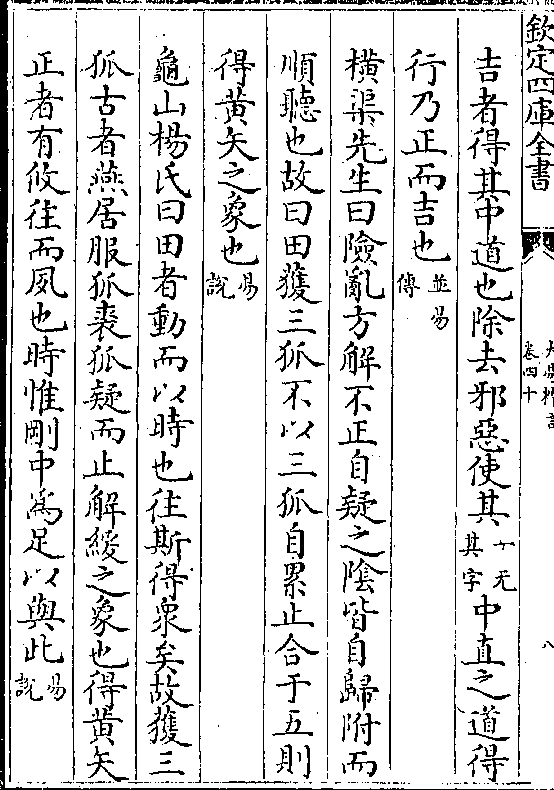 欽定四庫全書
大易粹言
卷四十
八
吉者得其中道也除去邪惡使其一无其字中直之道得
行乃正而吉也並易傳
橫渠先生曰險亂方解不正自疑之陰皆自歸附而
順聽也故曰田獲三狐不以三狐自累止合于五則
得黃矢之象也易說
龜山楊氏曰田者動而以時也往斯得衆矣故獲三
狐古者燕居服狐裘狐疑而止解緩之象也得黃矢
正者有攸往而夙也時惟剛中為足以與此易說